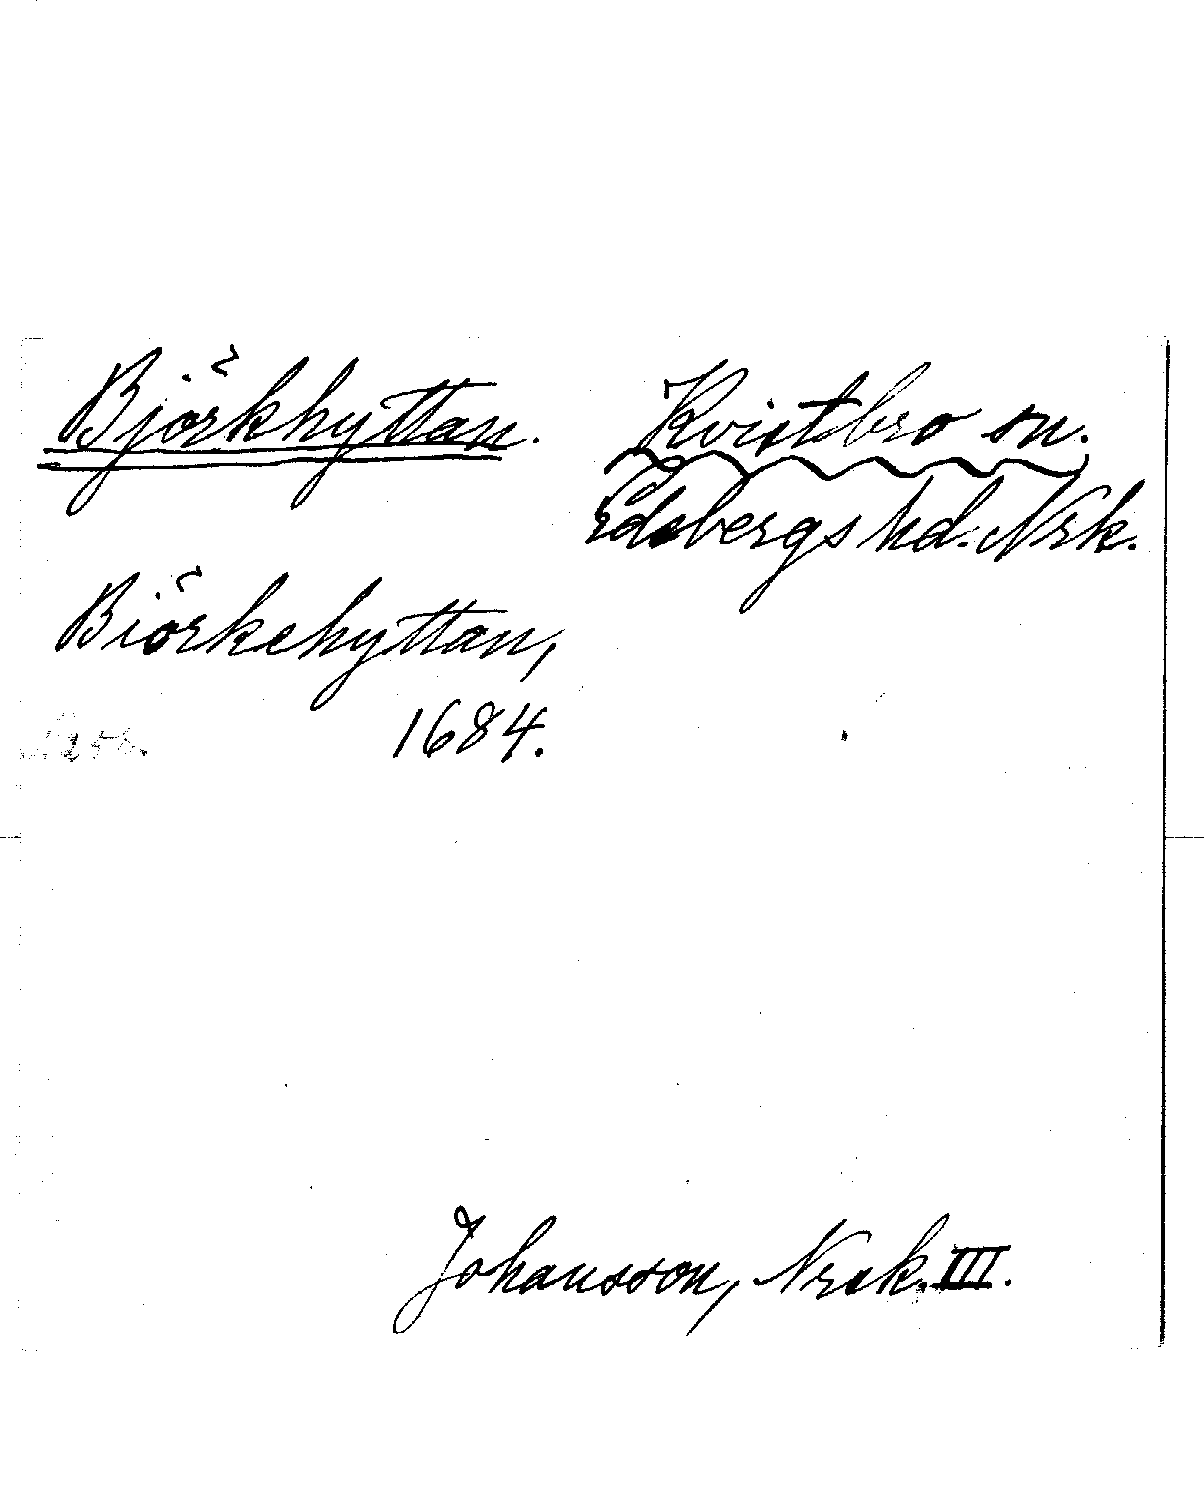 Björkhyttan.
Kvistbro sn.
Edsbergs hd. Nrk.
Biörkehyttan,
1684.
Johansson, Nrsk. III.